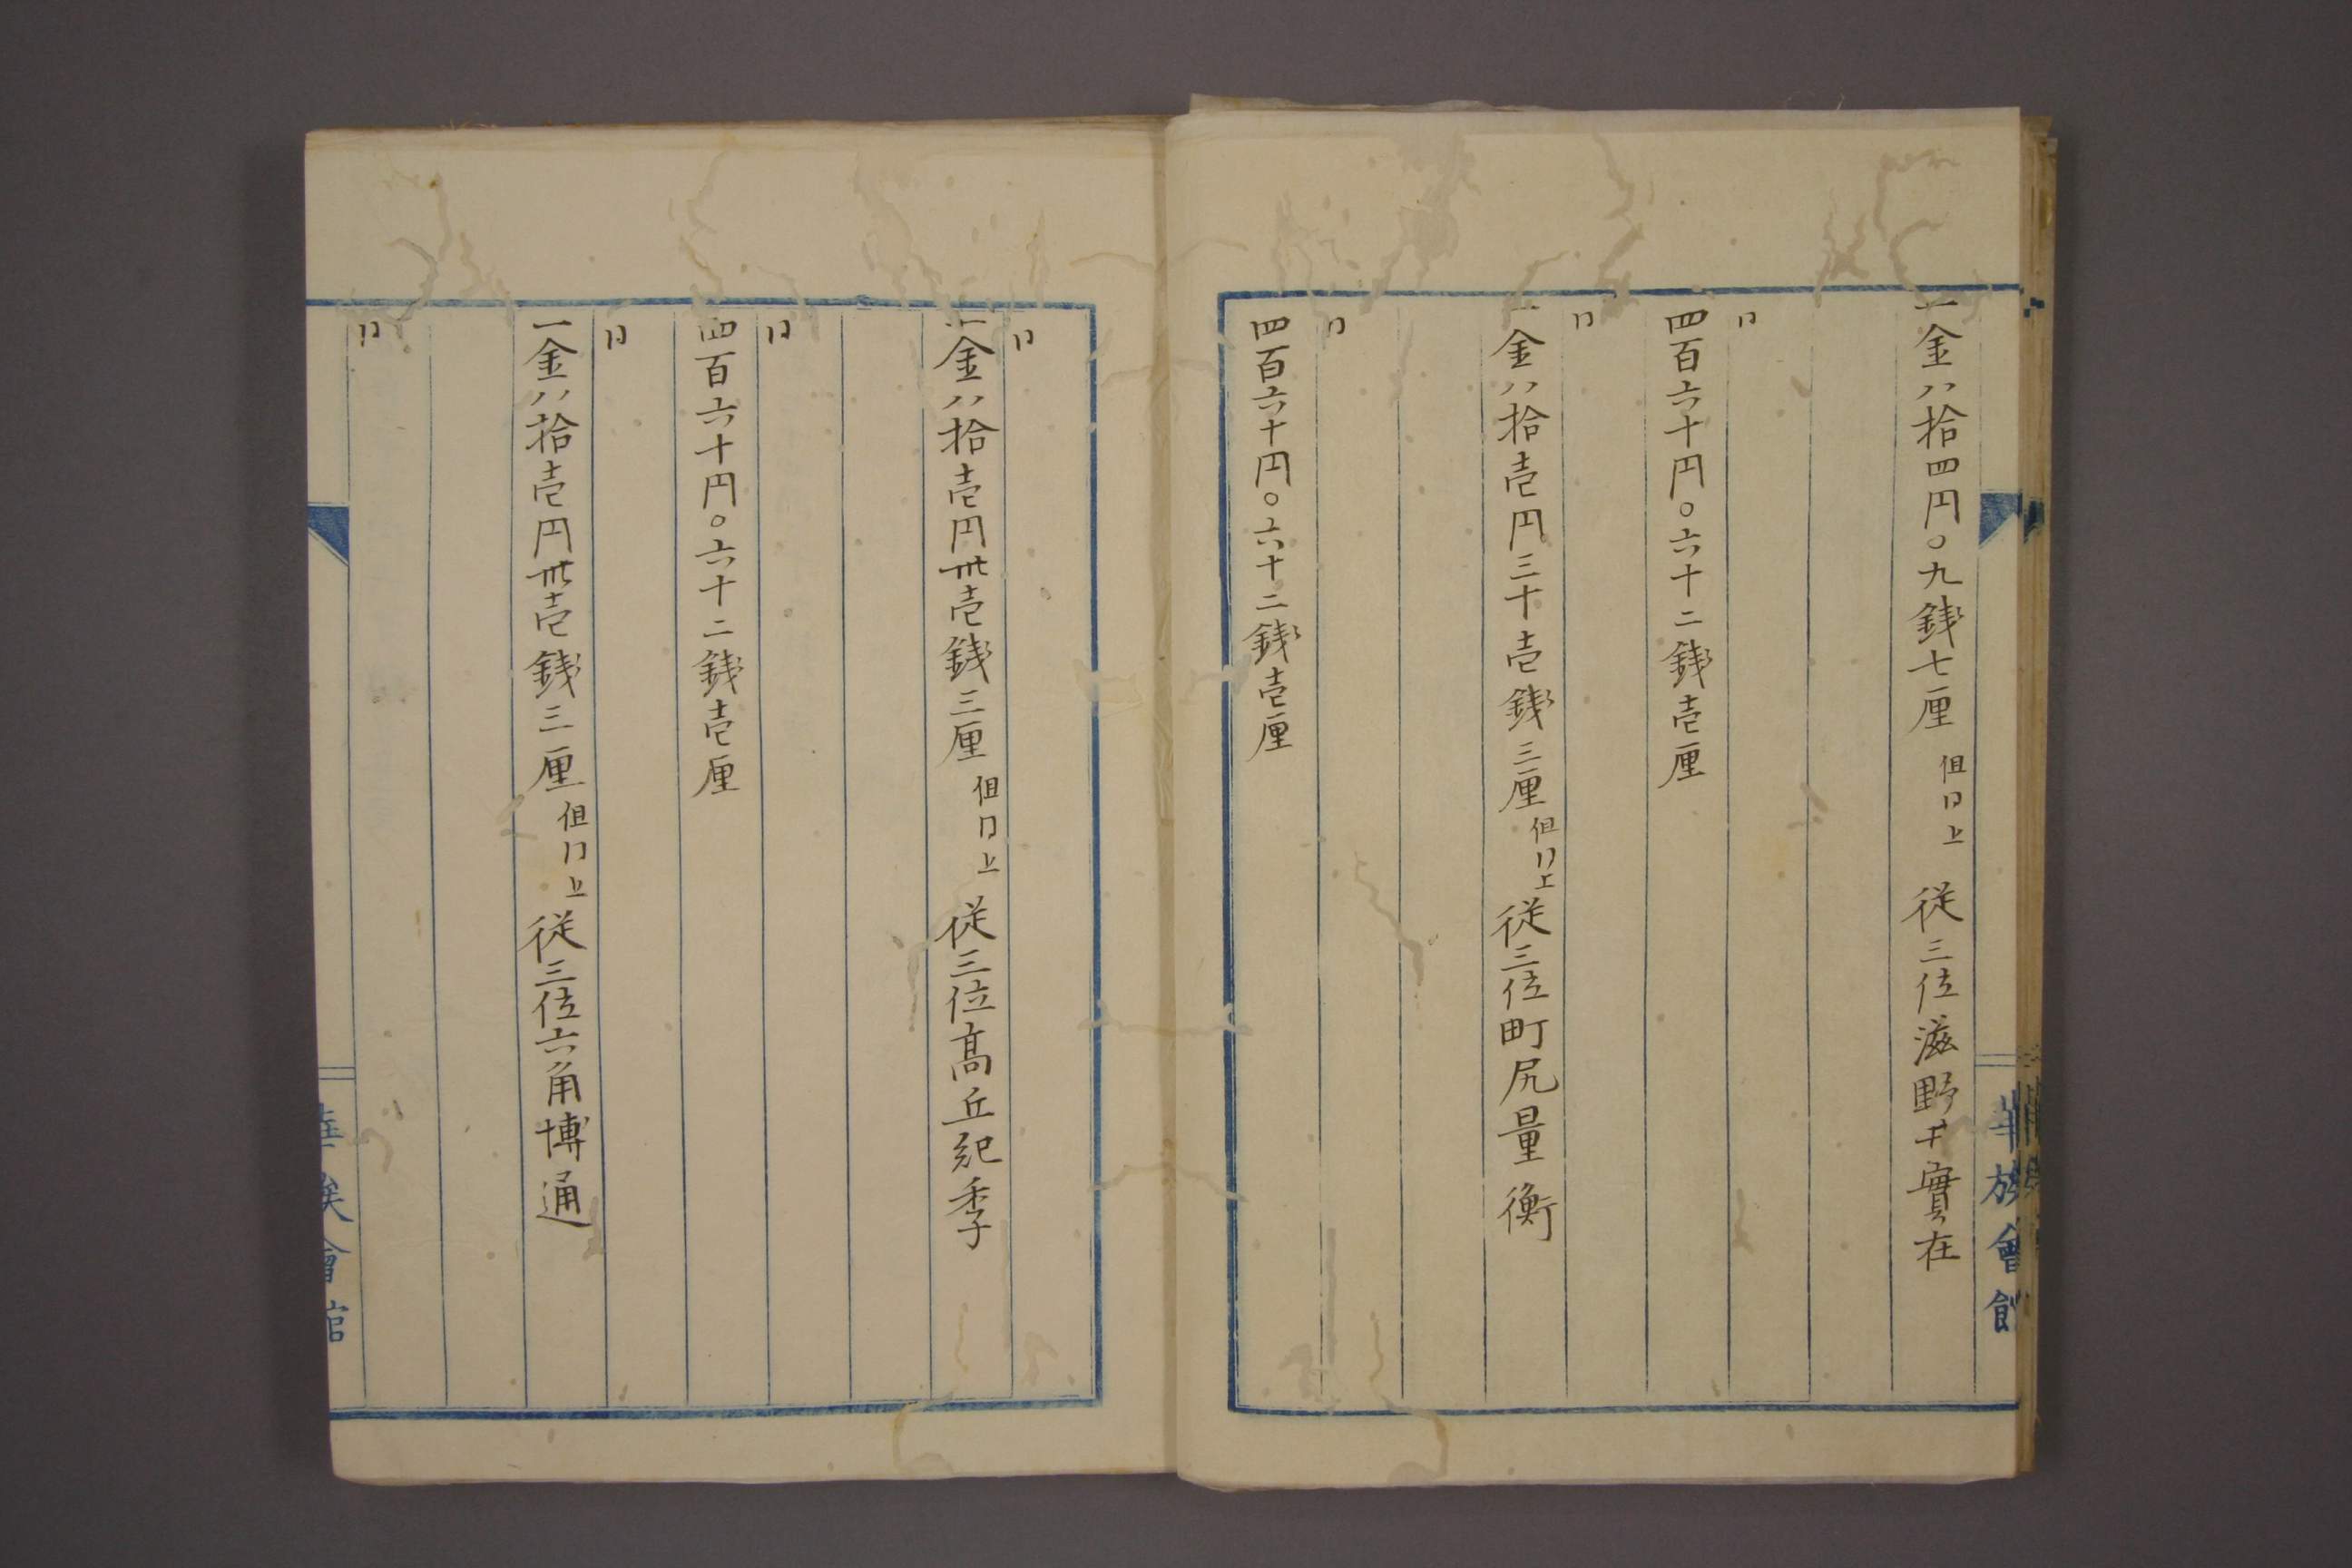 華族會館
一金八拾四円〇九銭七厘 但〃上 従三位滋野井實在
〃
四百六十円〇六十二銭壱厘
〃
一金八拾壱円三十壱銭三厘 但〃上 従三位町尻量衡
〃
四百六十円〇六十二銭壱厘
〃
一金八拾壱円卅壱銭三厘 但〃上 従三位髙丘紀季
〃
四百六十円〇六十二銭壱厘
〃
一金八拾壱円卅壱銭三厘 但〃上 従三位六角博通
〃
華族會館